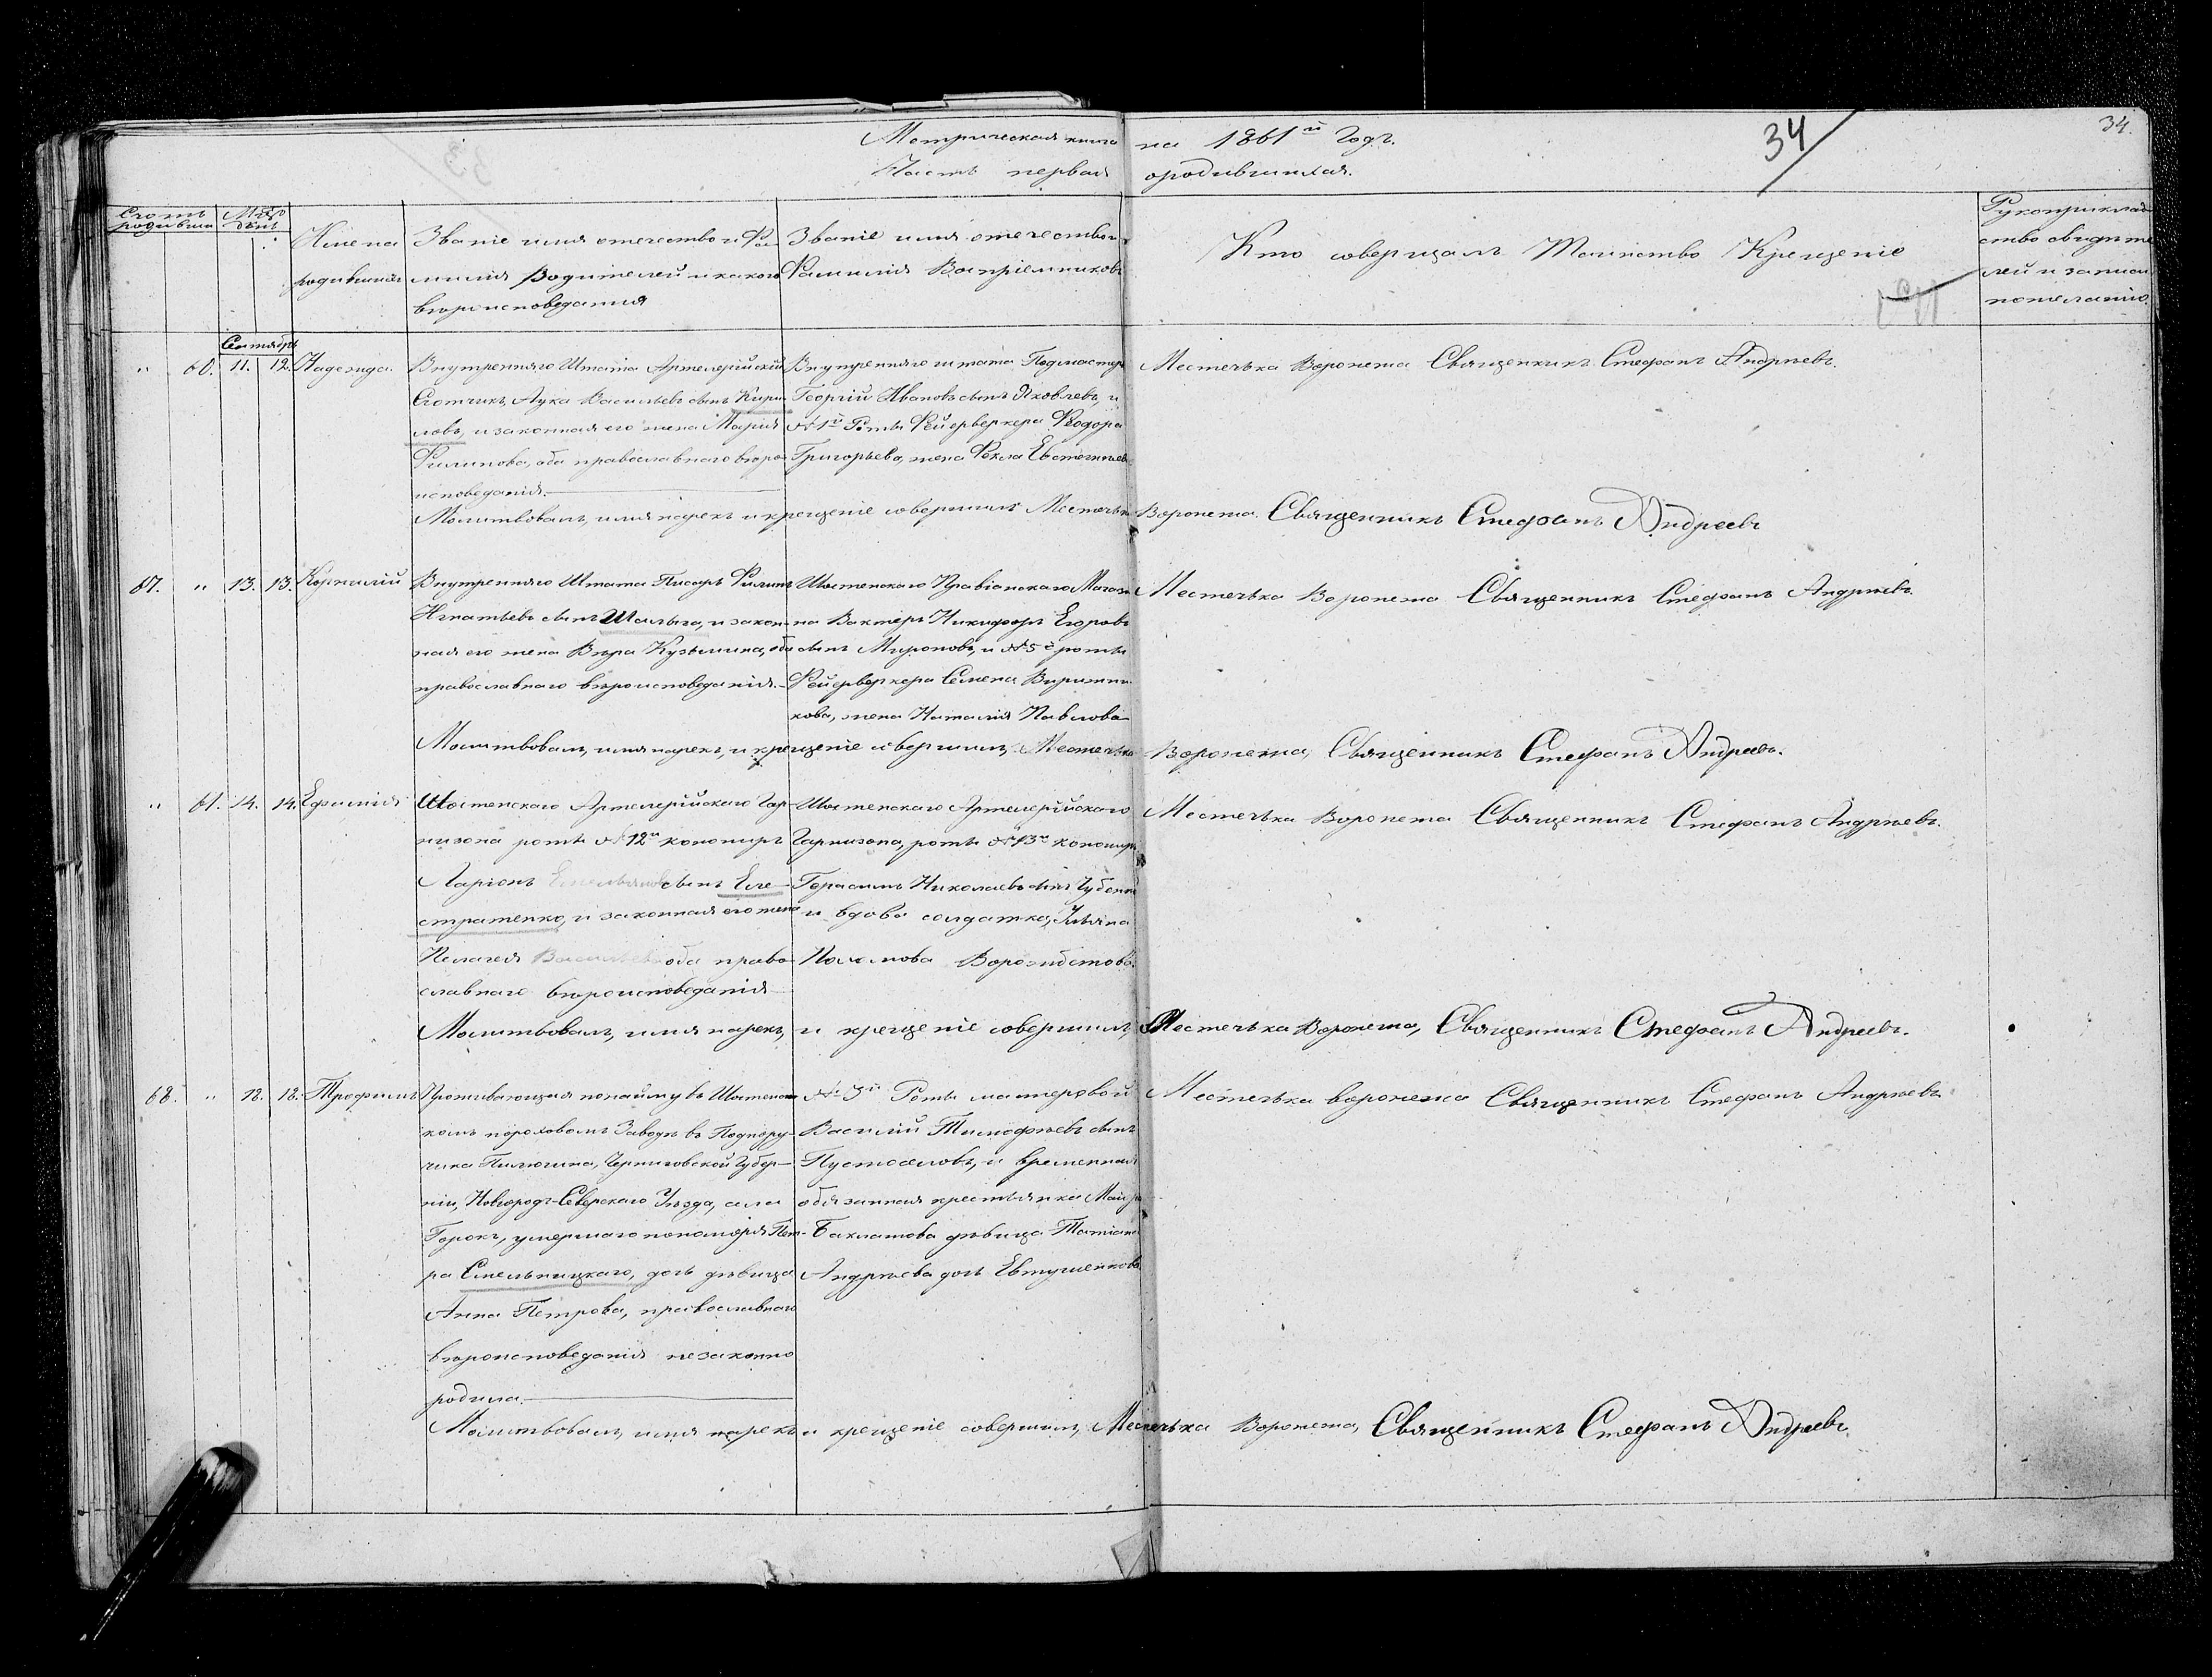 Метрическая книга на 1861й Годъ.
34
34.
Часть первая ородившихся.
Счотъ родивши
Мѣсо день
Имена родившихъ
Званіе имя отечество и Фа-
милія Родителей и какого
вѣроисповеданія
Званіе имя отечество и
Фамилія Воспріемниковъ
Кто совершалъ Таинство Крещеніе
Рукоприклад
ство свидѣте
лей и записи
пожеланію.
Сентябрь
" 60. 11. 12. Надежда.
Внутренняго Штата Артелерійскій
Счотчикъ, Лука Васильевъ сынъ Кири-
ловъ, и законная его жена Марія
Филипова, оба православнаго вѣро-
исповеданія.
Внутренняго штата Подмастер
Георгій Ивановъ сынъ Яковлевъ, и
№1й Роты Фейерверкера Феодора
Григорьева, жена Фекла Евстегнѣев
Местечка Воронежа Священникъ Стефанъ Андрѣевъ.
Молитвовалъ, имя нарекъ и крещеніе совершилъ Местечка Воронежа. Священникъ Стефанъ Андреевъ
67. " 13. 13. Корнилій
Внутренняго Штата Писарь Филипъ
Игнатьевъ сынъ Шалыга, и закон-
ная его жена Вѣра Кузьмина, оба
православнаго вѣроисповеданія.
Шостенскаго Правіанскаго Магази
на Вахтеръ Никифоръ Егоровъ
сынъ Мироновъ, и №5й роты
Фейерверкера Семена
кова, жена Наталія Павлова
Местечка Воронежа Священникъ Стефанъ Андрѣевъ.
Молитвовалъ, имя нарекъ, и крещеніе совершилъ, Местечка Воронежа, Священникъ Стефанъ Андреевъ.
" 61. 14. 14. Ефимія
Шостенскаго Артелерійскаго Гар-
низона роты №12й конониръ
Ларіонъ Емельяновъ сынъ Еле-
стратенко, и законная его жена
Пелагея Васильева оба право-
славнаго вѣроисповеданія
Шостенскаго Артелерійскаго
Гарнизона, роты №13й кононир
Герасимъ Николаевъ сынъ Губенко
и вдова солдатка, Ульяна
Местечка Воронежа Священникъ Стефанъ Андрѣевъ.
Молитвовалъ, имя нарекъ, и крещеніе совершилъ, Местечка Воронежа, Священникъ Стефанъ Андреевъ.
68. " 18. 18. Трофимъ
Проживающая понайму въ Шостенс
комъ пороховомъ Заводѣ въ Подпору-
чика Пилюгина, Черниговской Губер-
ніи, Новгородъ-Северскаго Уѣзда, села
Горокъ, умершаго пономоря Пет-
ра Смельницкаго, дочь дѣвица
Анна Петрова, православнаго
вѣроисповеданія незаконно
родила.
№3й Роты мастеровой
Василій Тимофѣевъ сынъ
Пустоваловъ, и временная
обязанная крестьянка
Бахлатова дѣвица Татіана
Андрѣева дочь Евтушенкова
Местечка воронежа Священникъ Стефанъ Андрѣевъ
Молитвовалъ, имя нарекъ и крещеніе совершилъ, Местечка Воронежа, Священникъ Стефанъ Андреевъ.